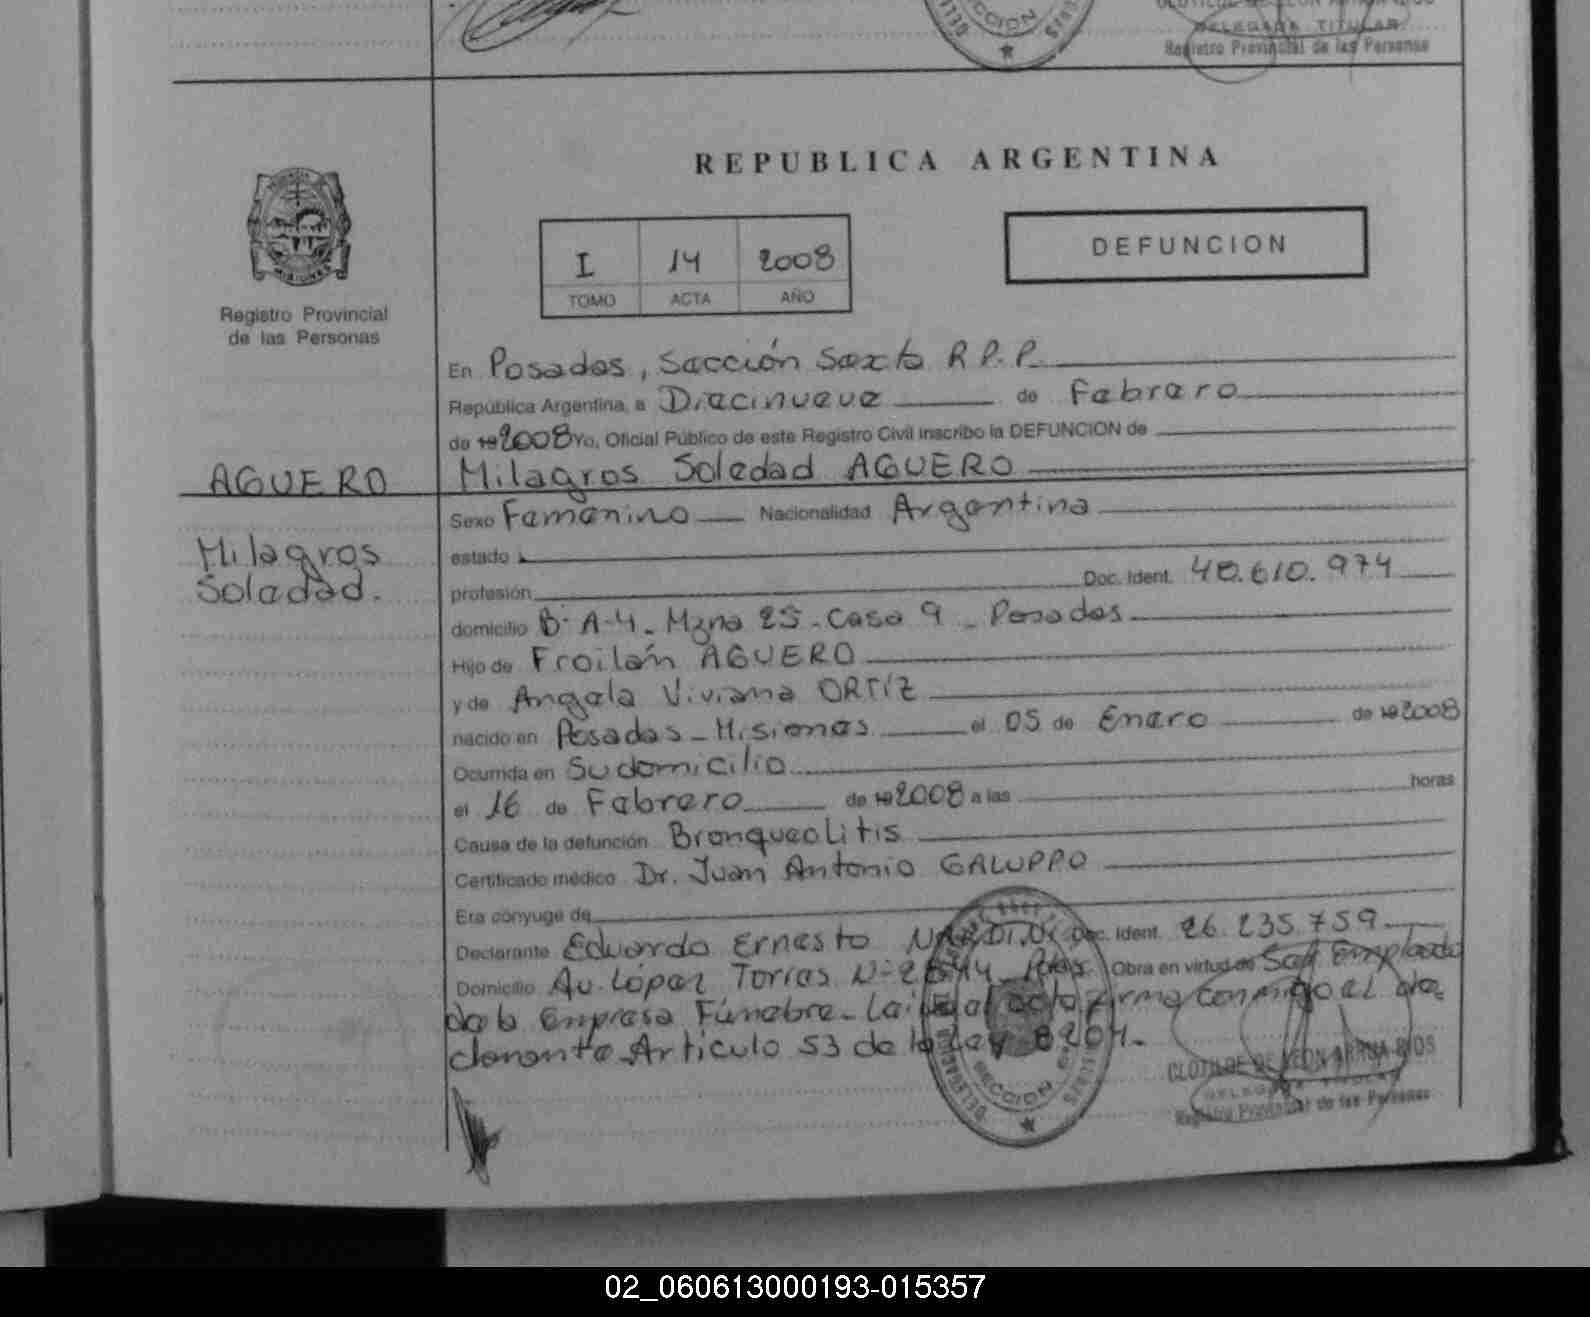 DELEGADA TITULAR
Registro Provincial de las Personas
REPUBLICA ARGENTINA
I 14 2008
TOMO ACTA AÑO
DEFUNCION
MISIONES
Registro Provincial
de las Personas
En Posadas, Sección Sexta R.P.P.
República Argentina, a Diecinueve de Febrero
de 19 2008 Yo, Oficial Público de este Registro Civil inscribo la DEFUNCION de
AGUERO Milagros Soledad AGUERO
Sexo Femenino Nacionalidad Argentina
Milagros
Soledad.
estado
profesión Doc. Ident. 40.610.974
domicilio B: A-4 - Mzna 25 - Casa 9 - Posadas
Hijo de Froilán AGUERO
y de Angela Viviana ORTÍZ
nacido en Posadas - Misiones el 05 de Enero de 19 2008
Ocurrida en Su domicilio
el 16 de Febrero de 19 2008 a las horas
Causa de la defunción Bronqueolitis
Certificado médico Dr. Juan Antonio GALUPPO
Era cónyuge de
Declarante Eduardo Ernesto Doc. Ident. 26.235.759
Domicilio Av. López Torres N° Obra en virtud de Ser Empleado
de la Empresa Fúnebre - Leída el acta firma conmigo el de-
clarante - Artículo 53 de la Ley 8204.
SECCION
CLOTILDE DE LEON ARRUA RIOS
DELEGADA TITULAR
Registro Provincial de las Personas
02_060613000193-015357